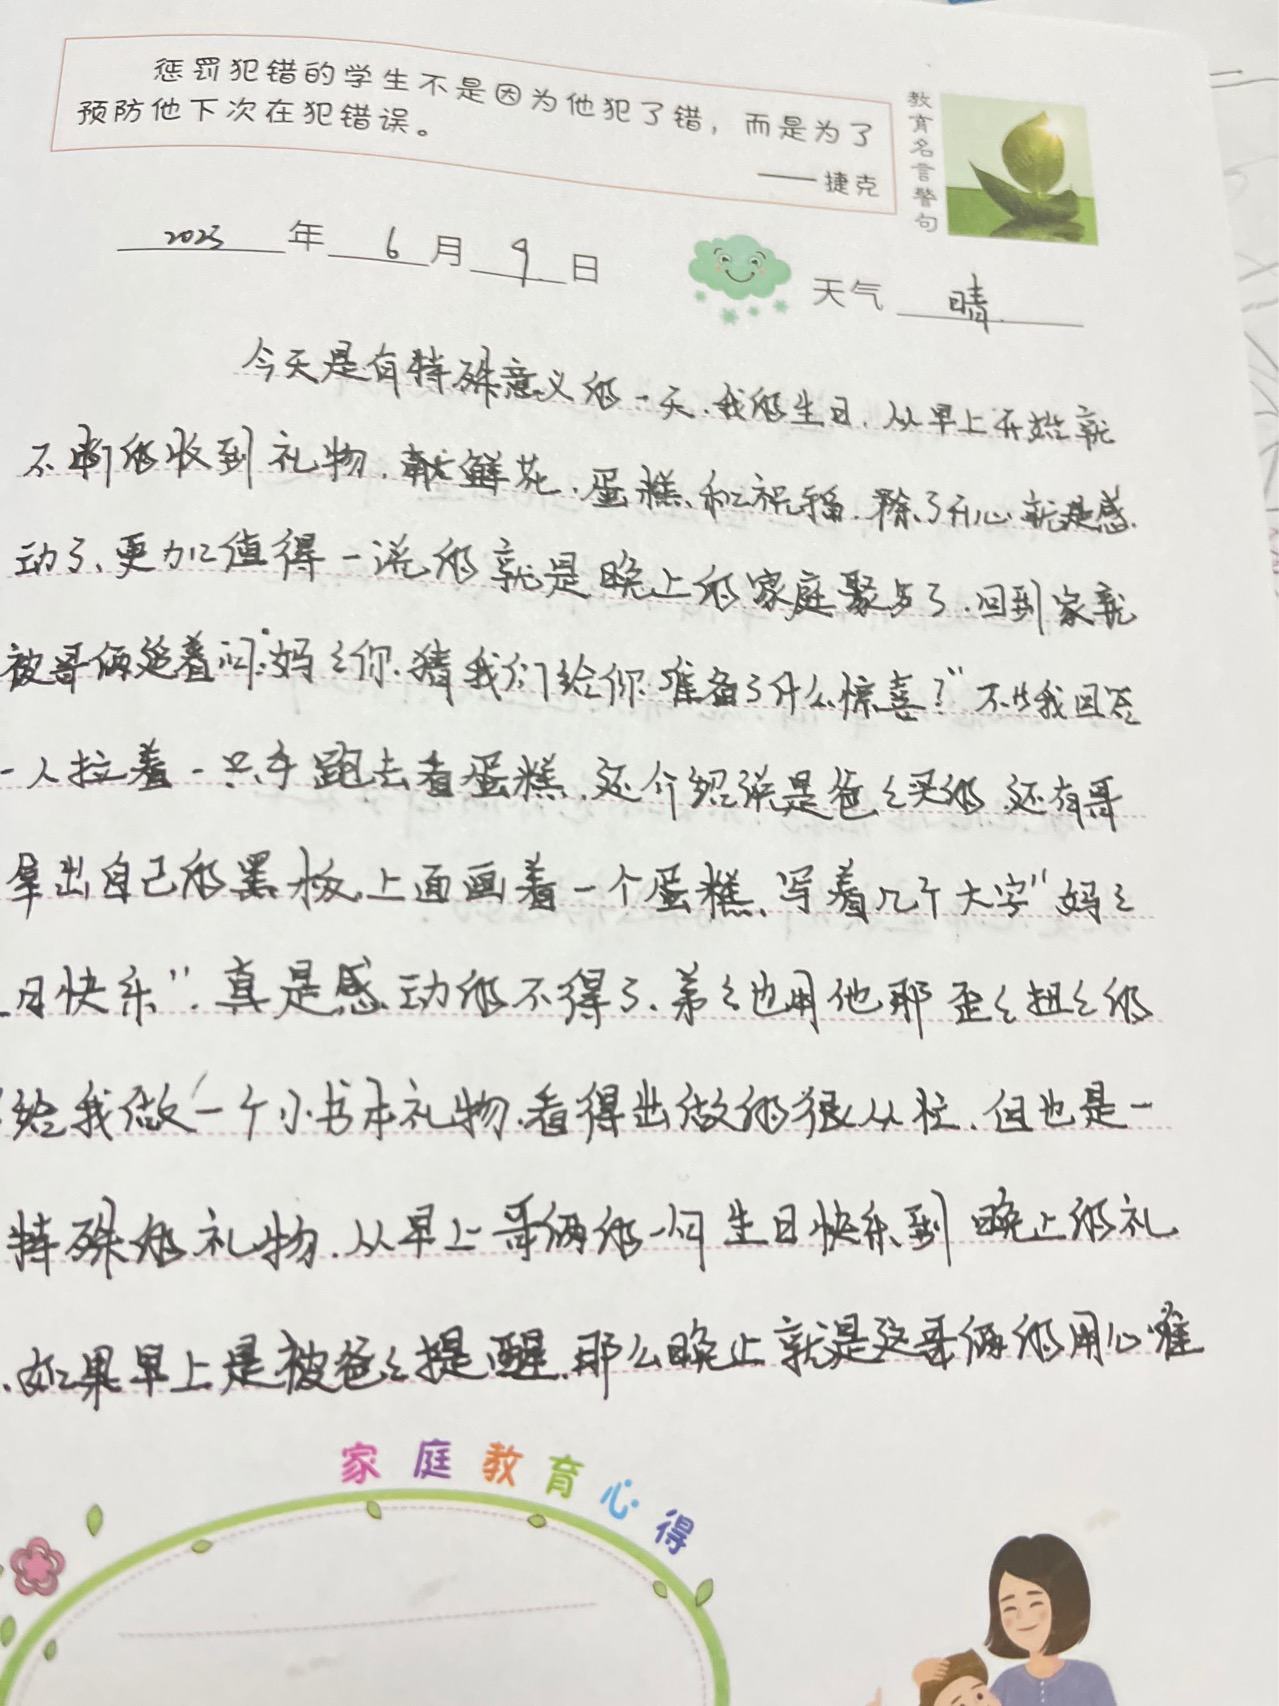 惩罚犯错的学生不是因为他犯了错，而是为了
预防他下次在犯错误。
——捷克
教育名言警句
2023年6月9日
天气 晴
今天是有特殊意义的一天.我的生日.从早上开始就
不断的收到礼物.鲜花.蛋糕.和祝福.除了开心就是感
动了.更加值得一说的就是晚上的家庭聚会了.回到家就
被哥俩追着问:妈妈你.猜我们给你准备了什么惊喜?"不等我回答
一人拉着一只手跑去看蛋糕.还介绍说是爸爸买的.还有哥
拿出自己的黑板.上面画着一个蛋糕.写着几个大字"妈妈
日快乐".真是感动的不得了.弟弟也用他那歪歪扭扭的
给我做一个小书本礼物.看得出做的很从忙.但也是一
特殊的礼物.从早上哥俩的一句生日快乐到晚上的礼
.如果早上是被爸爸提醒.那么晚上就是这哥俩的用心准
家庭教育心得